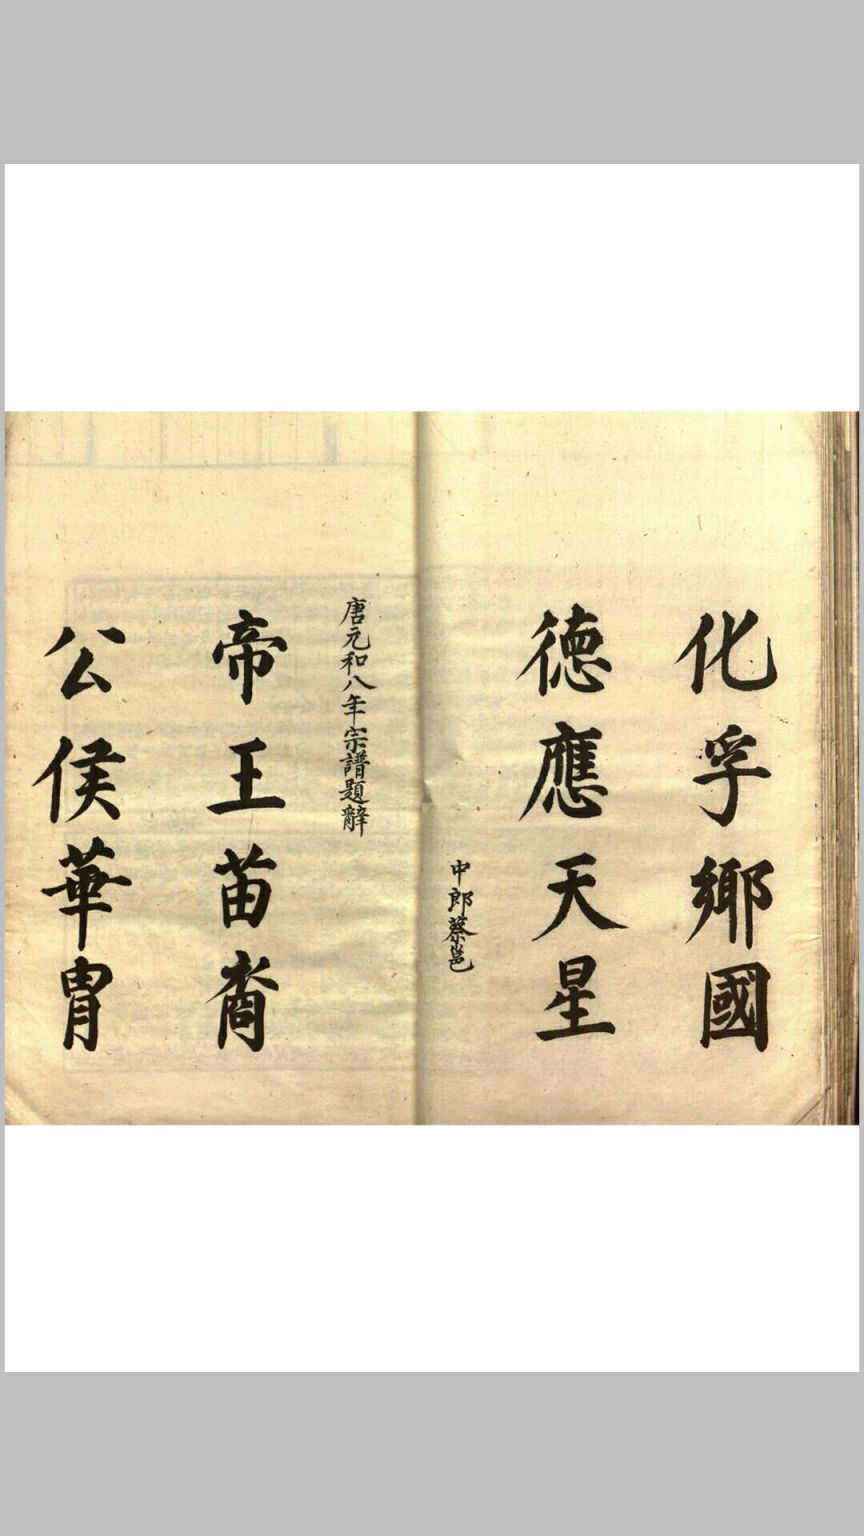 化孚鄉國
德應天星
中郎蔡邕
唐元和八年宗譜題辭
帝王苗裔
公侯華胄